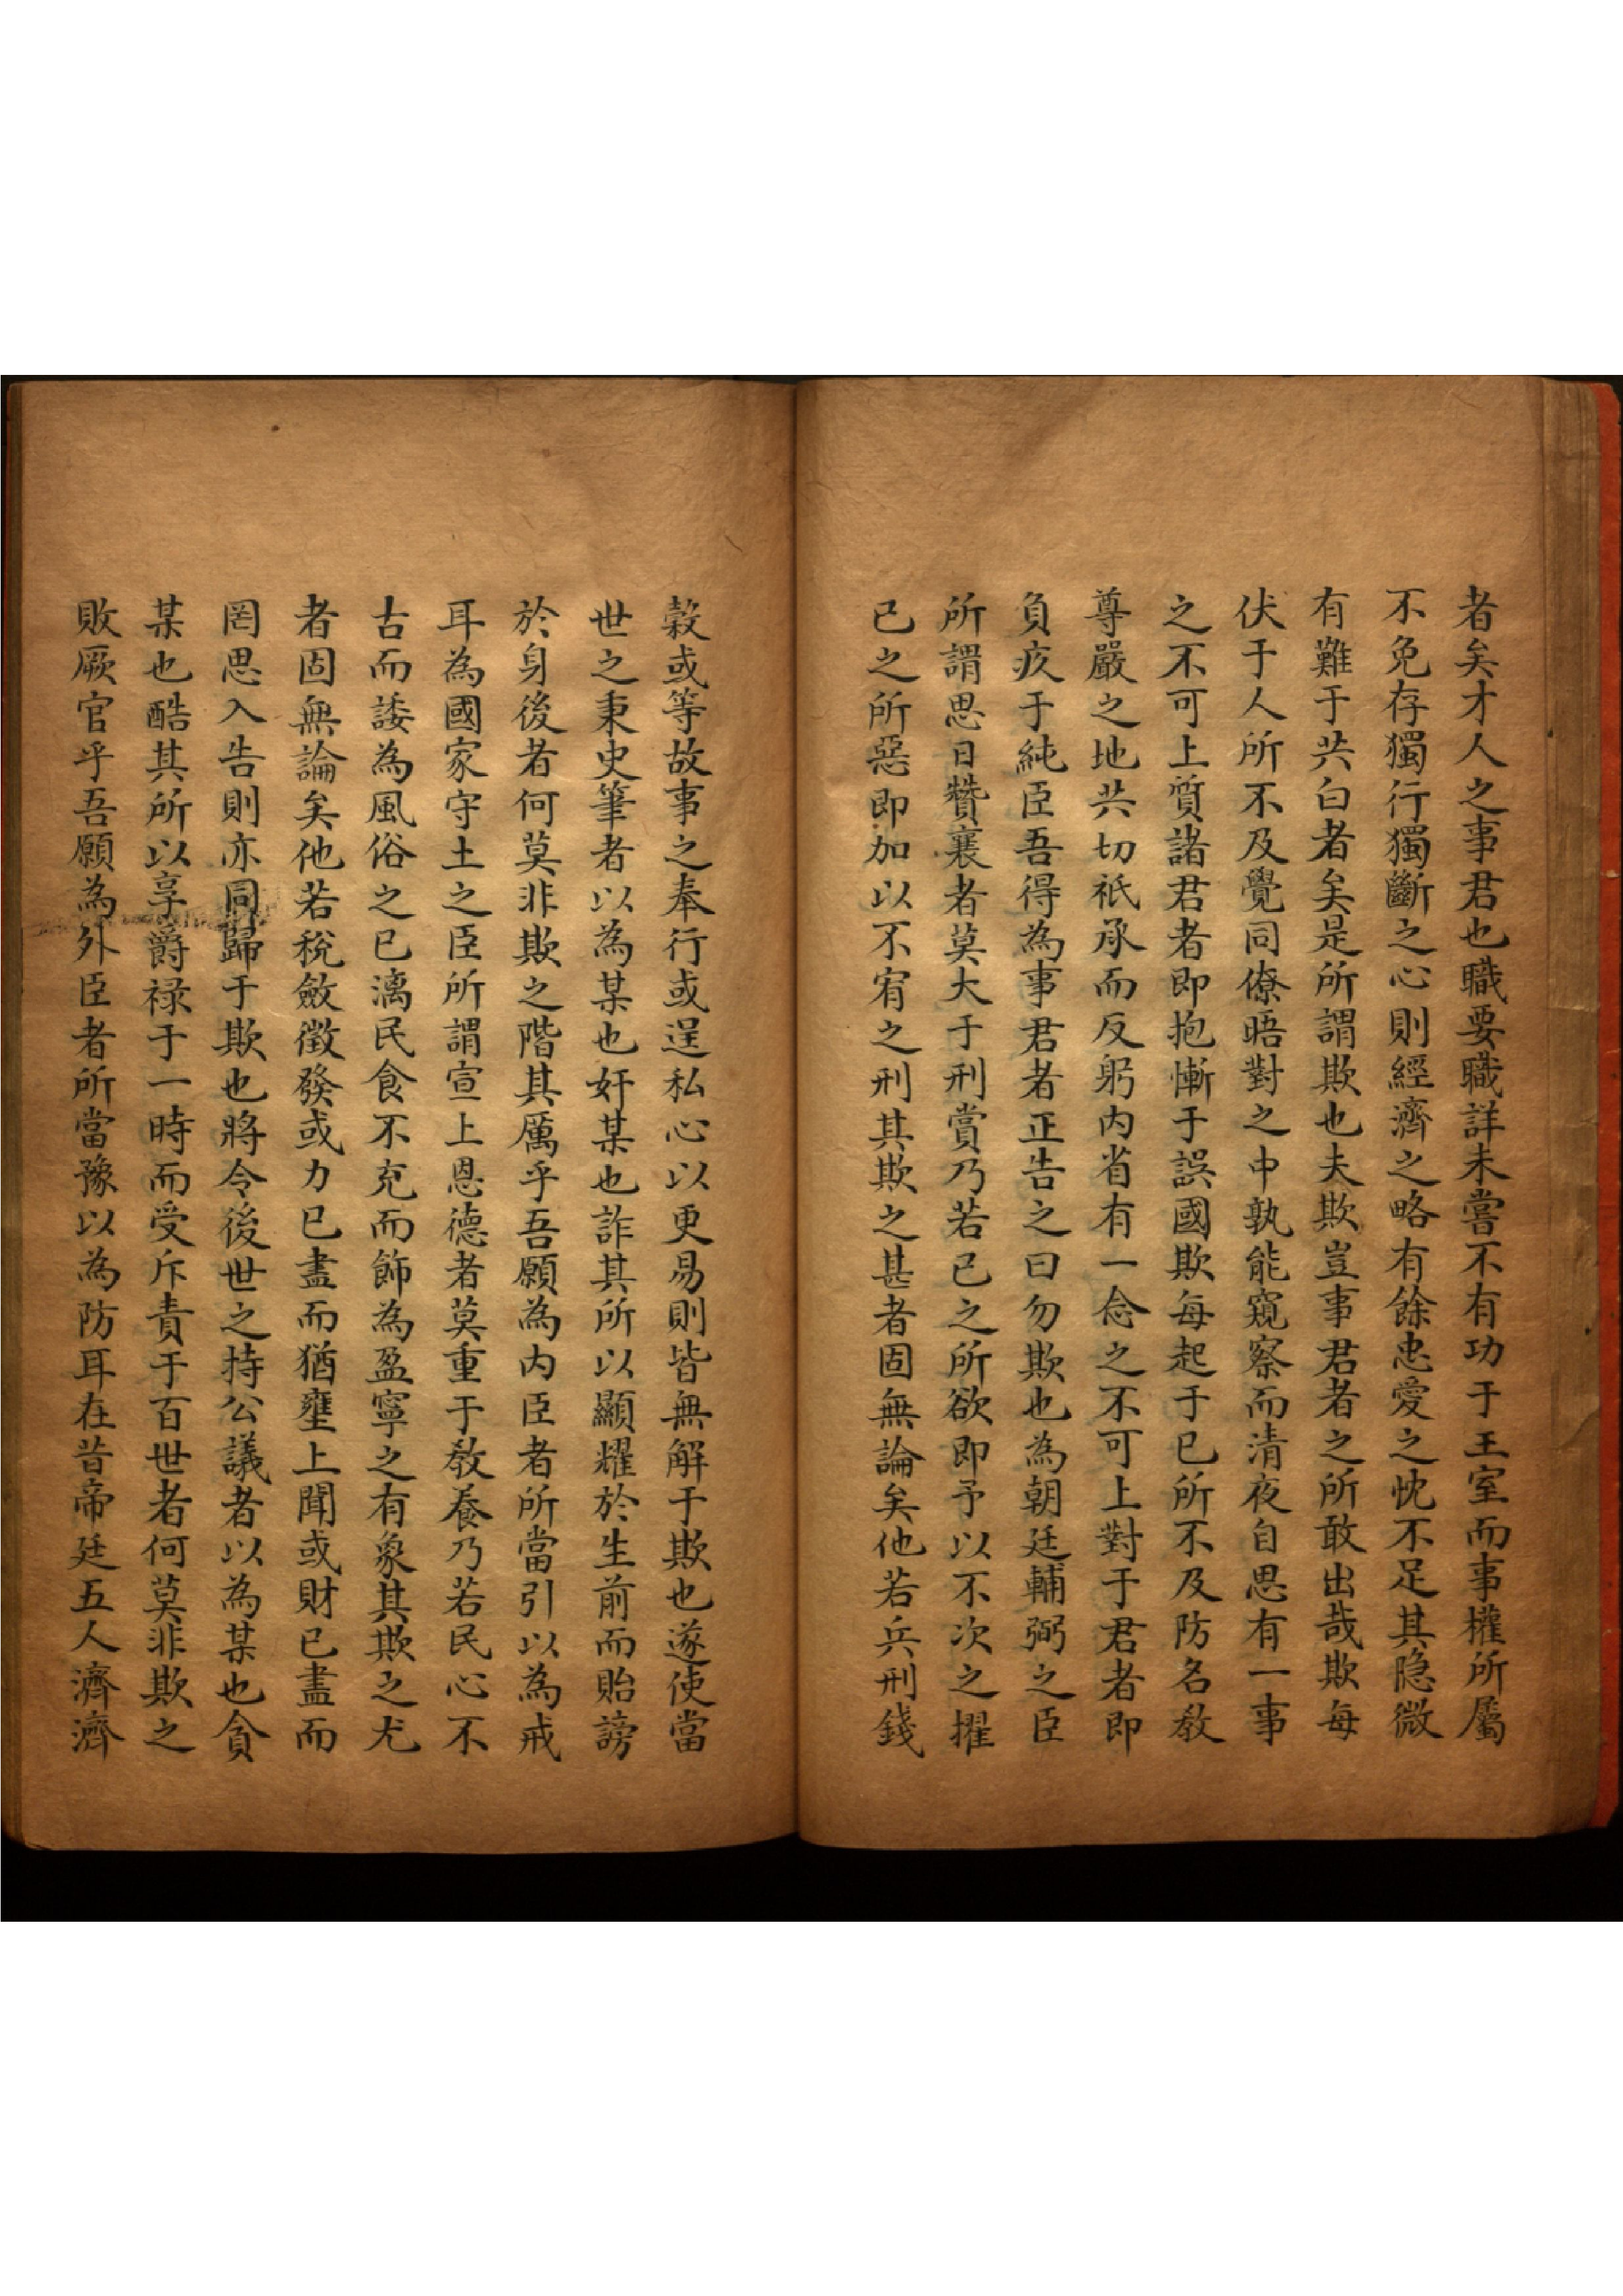 者矣才人之事君也職要職詳未嘗不有功于王室而事權所屬
不免存獨行獨斷之心則經濟之略有餘忠愛之忱不足其隐微
有難于共白者矣是所謂欺也夫欺豈事君者之所敢出哉欺每
伏于人所不及覺同僚晤對之中孰能窺察而清夜自思有一事
之不可上質諸君者即抱慚于誤國欺每起于已所不及防名教
尊嚴之地共切祇承而反躬内省有一念之不可上對于君者即
負疚于純臣吾得為事君者正告之曰勿欺也為朝廷輔弼之臣
所謂思日贊襄者莫大于刑賞乃若已之所欲即予以不次之擢
已之所惡即加以不宥之刑其欺之甚者固無論矣他若兵刑錢
穀或等故事之奉行或逞私心以更易則皆無解于欺也遂使當
世之秉史筆者以為某也奸某也詐其所以顯耀於生前而貽謗
於身後者何莫非欺之階其厲乎吾願為内臣者所當引以為戒
耳為國家守土之臣所謂宣上恩德者莫重于教養乃若民心不
古而諉為風俗之已漓民食不充而飾為盈寧之有象其欺之尤
者固無論矣他若稅斂徵發或力已盡而猶壅上聞或財已盡而
罔思入告則亦同歸于欺也將令後世之持公議者以為某也貪
某也酷其所以享爵禄于一時而受斥責于百世者何莫非欺之
敗厥官乎吾願為外臣者所當豫以為防耳在昔帝廷五人濟濟